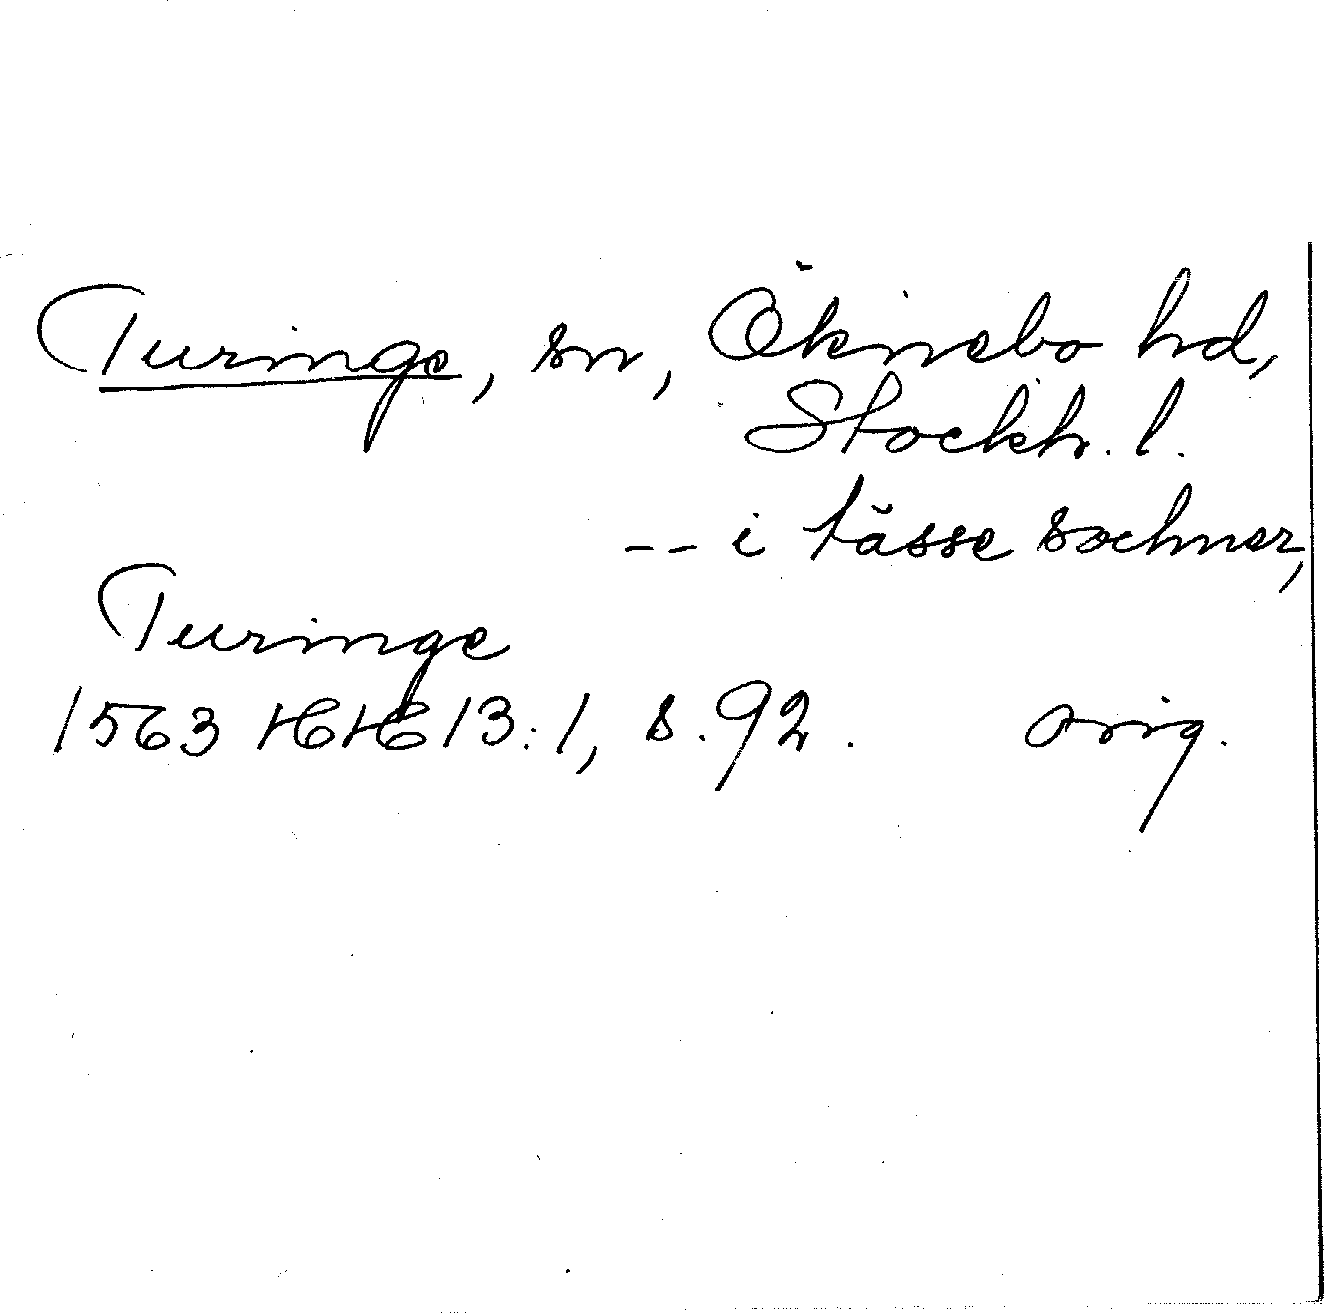 Turinge, sn, Öknebo hd,
Stockh. l.
-- i tässe sochner,
Turinge
1563 HH 13:1, s. 92. orig.